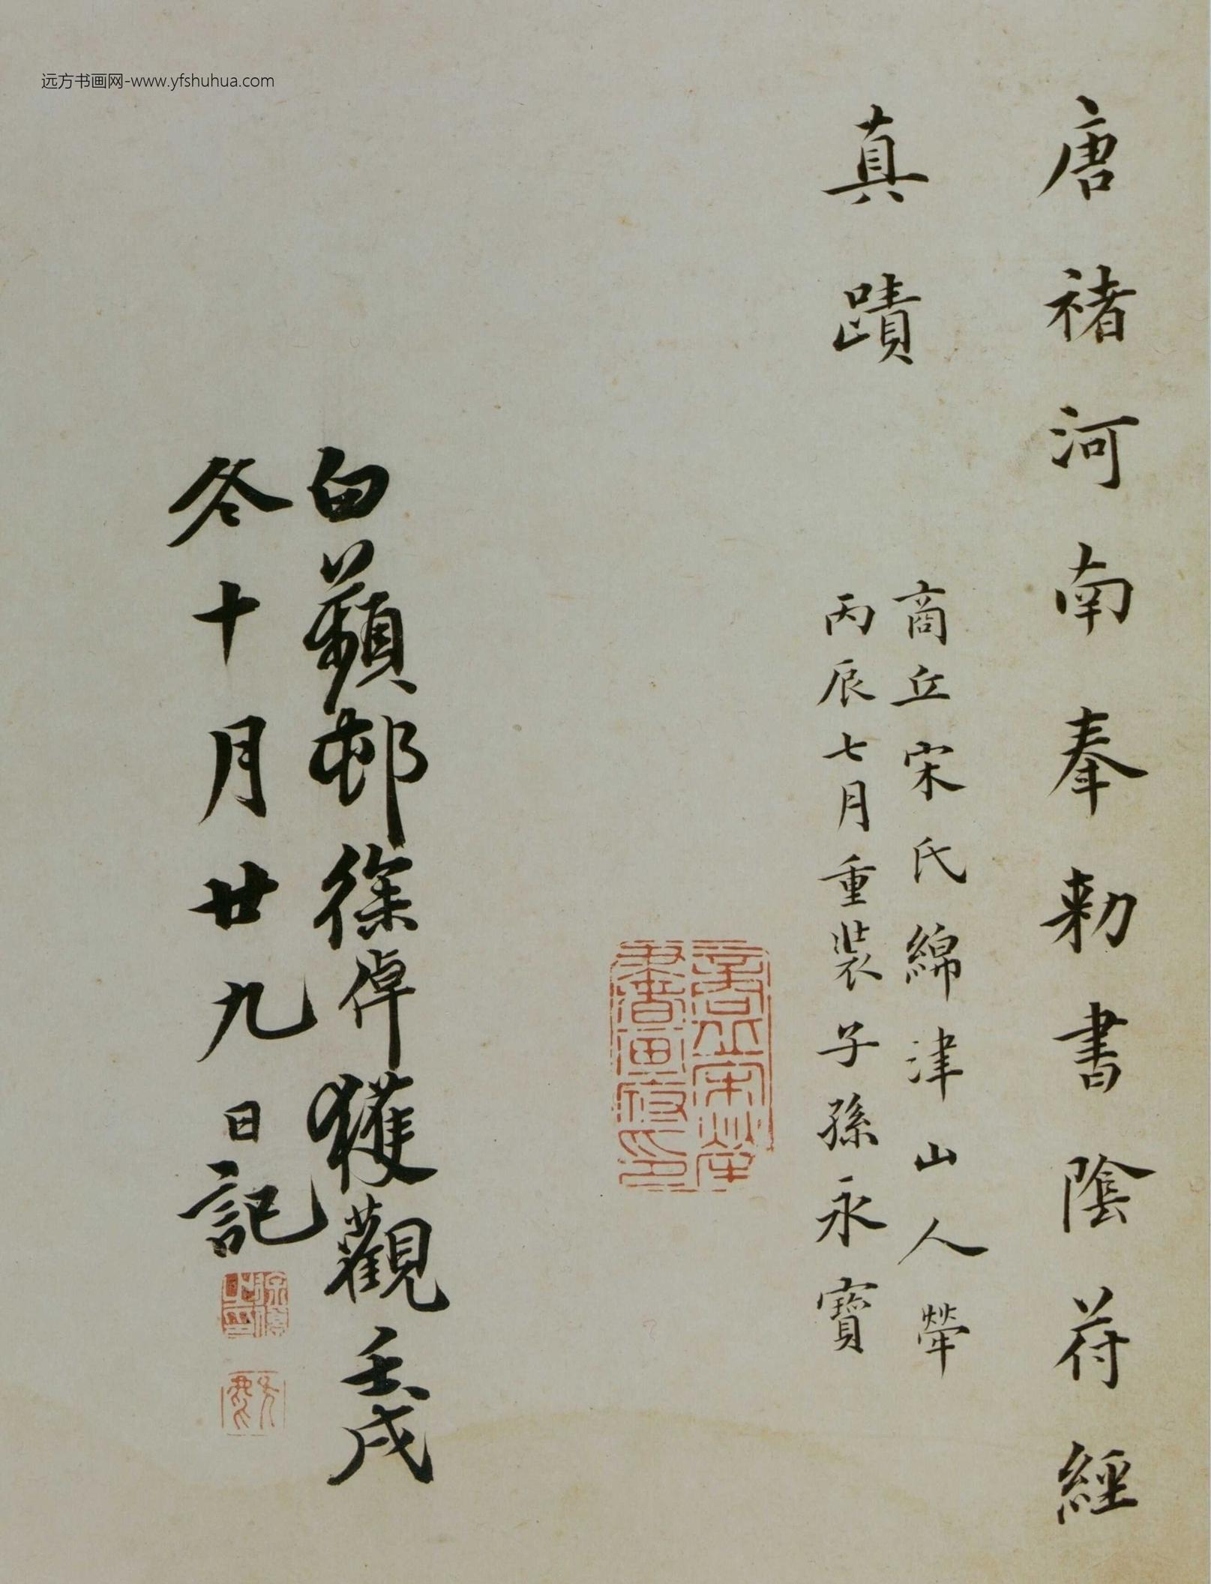 远方书画网-www.yfshuhua.com
唐褚河南奉勅書陰符經
真蹟
商丘宋氏綿津山人犖
丙辰七月重裝子孫永寶
商丘宋犖審定真蹟
白蘋邨徐倬獲觀壬戌
冬十月廿九日記